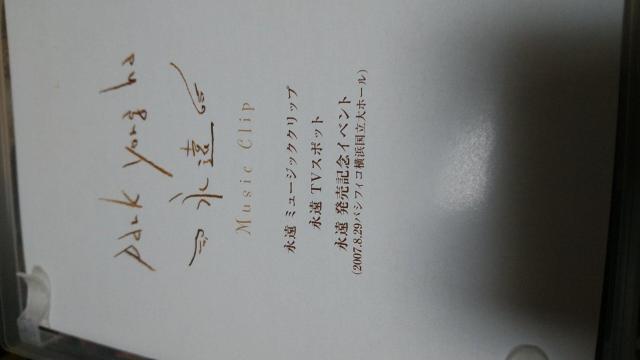 Park Yong ha
永遠
Music Clip
永遠 ミュージッククリップ
永遠 TVスポット
永遠 発売記念イベント
(2007.8.29パシフィコ横浜国立大ホール)